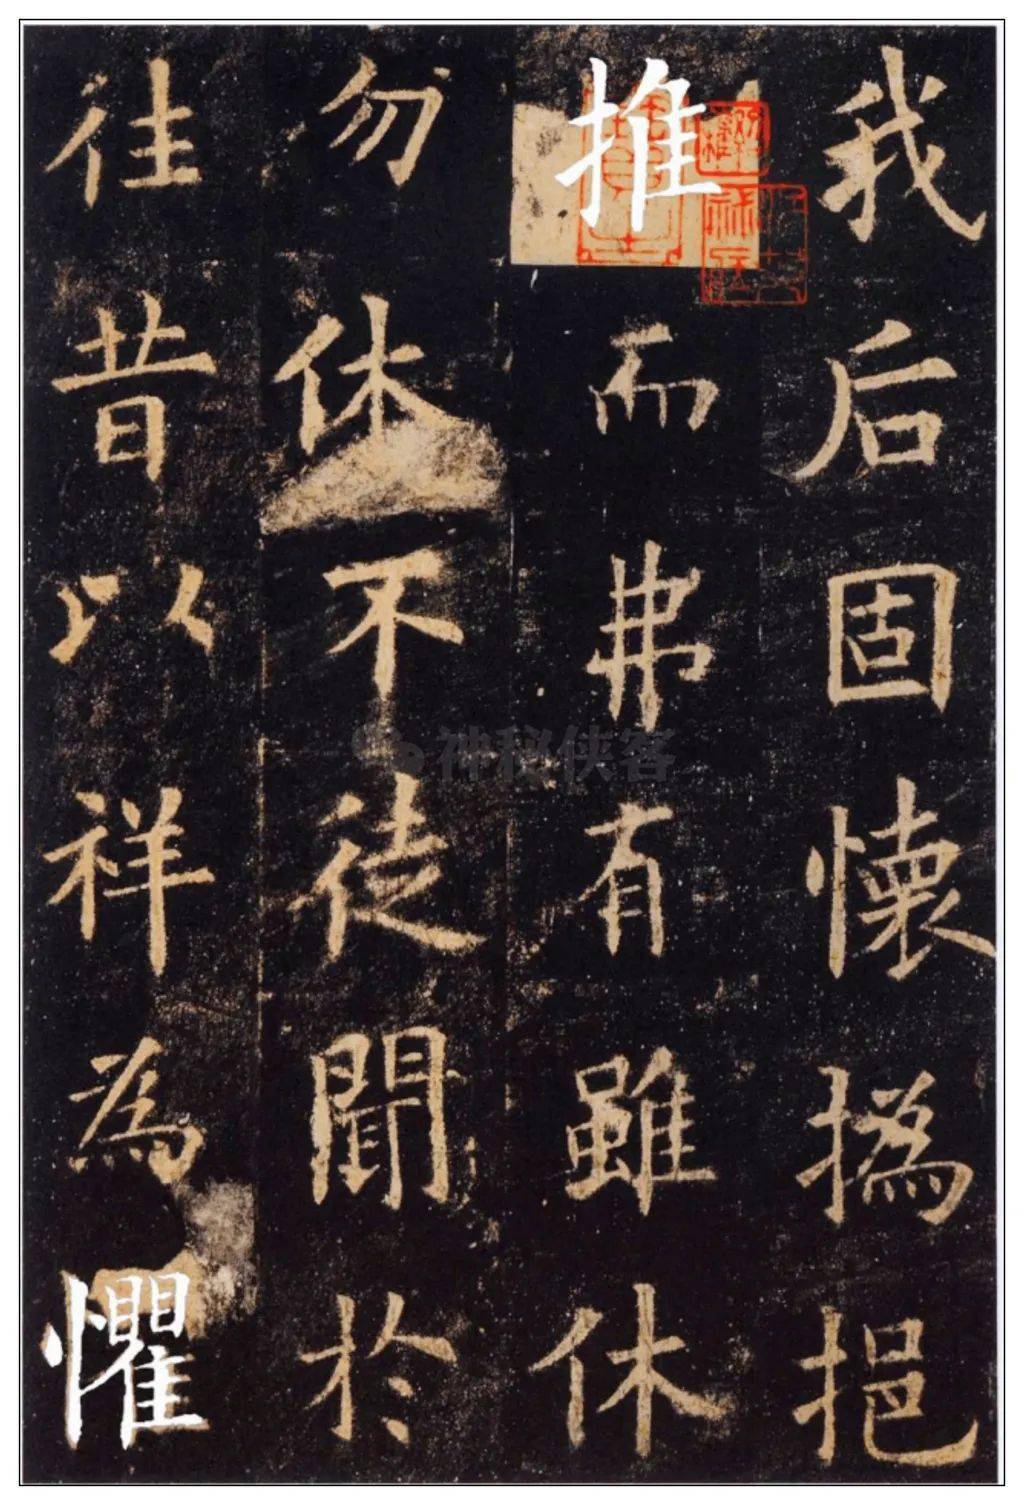 我后固懷撝挹
推而弗有雖休
勿休不徒聞於
往昔以祥為懼
神秘侠客